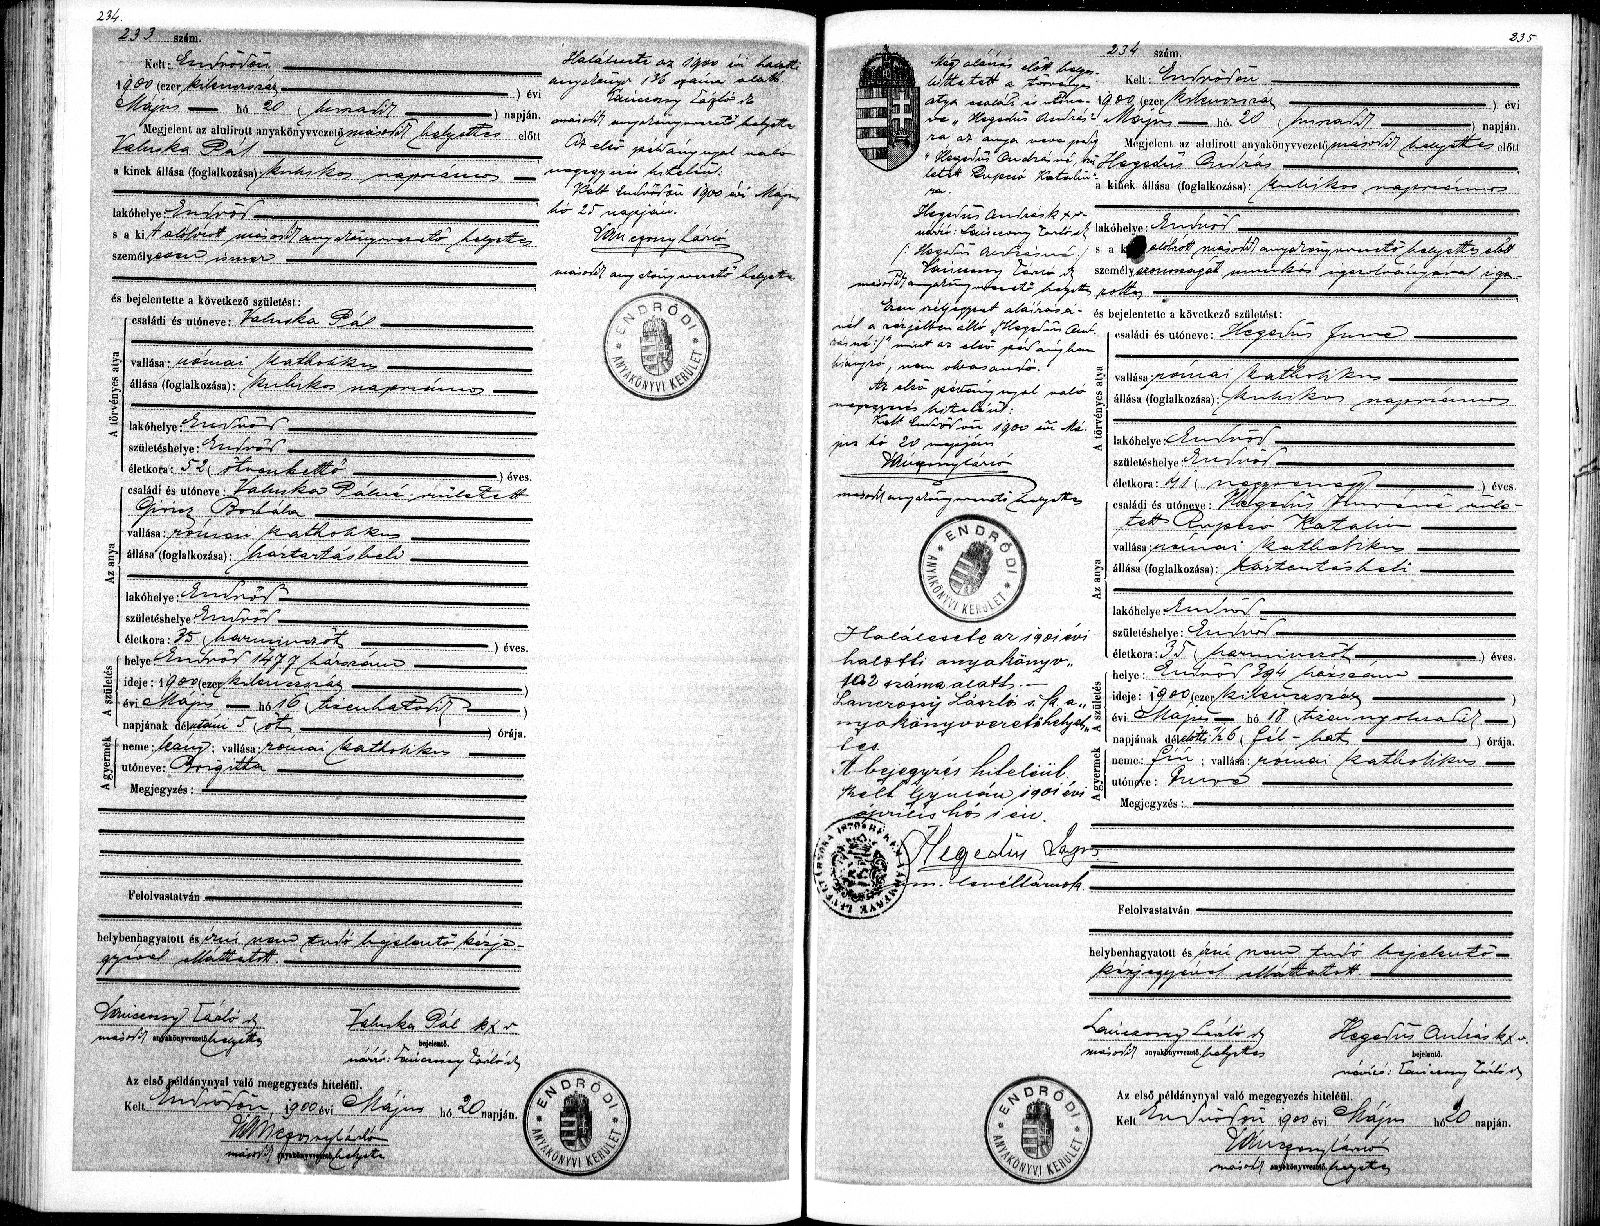 234.
233 szám.
Kelt: Endrődön
1900 (ezer kilencszáz ) évi
Május hó 20 (huszadik ) napján.
Megjelent az alulirott anyakönyvvezető második helyettes előtt
Valuska Pál
a kinek állása (foglalkozása): kubikos napszámos
lakóhelye: Endrőd
s a kit alulírott második anyakönyvvezető helyettes
személyesen ismer
és bejelentette a következő születést:
A törvényes atya
családi és utóneve: Valuska Pál
vallása: római katholikus
állása (foglalkozása): kubikos napszámos
lakóhelye: Endrőd
születéshelye: Endrőd
életkora: 52 (ötvenkettő ) éves.
Az anya
családi és utóneve: Valuska Pálné született
Borbála
vallása: római katholikus
állása (foglalkozása): háztartásbeli
lakóhelye: Endrőd
születéshelye: Endrőd
életkora: 35 (harminczöt ) éves.
A születés
helye: Endrőd 1477 házszám
ideje: 1900 (ezer kilencszáz )
évi Május hó 16 (tizenhatodik )
napjának délutáni 5 (öt ) órája.
A gyermek
neme: leány; vallása: római katholikus
utóneve: Brigitta
Megjegyzés:
Felolvastatván
helybenhagyatott és írni nem tudó bejelentő kézje-
gyével elláttatott.
Lánczony László
második anyakönyvvezető helyettes
Valuska Pál kxv
bejelentő.
Az első példánynyal való megegyezés hiteléül.
Kelt Endrődön, 1900 évi Május hó 20 napján.
második anyakönyvvezető helyettes
ENDRŐDI ANYAKÖNYVI KERÜLET
Halálesete az 1900 évi halotti
anyakönyv 136 száma alatt
Lánczony László
második anyakönyvvezető helyettes
Az első példánynyal való
megegyezés hiteléül.
Kelt Endrődön 1900 évi Május
hó 25 napján.
második anyakönyvvezető helyettes
ENDRŐDI ANYAKÖNYVI KERÜLET
235
Még aláírás előtt helye-
sbíttetett a törvényes
atya családi és utóne-
ve „Hegedüs András-
ra az anya neve pedig
„Hegedüs Andrásné, szü-
letett Katalin-
ra.
Hegedüs András kxv
Lánczony László
(: Hegedüs Andrásné :)
második anyakönyvvezető helyettes
Ezen széljegyzet aláírásá-
nál a zárjelben álló „(:Hegedüs And-
rásné:)" mint az első példányban
hiányzó, nem olvasandó.
Az első példánynyal való
megegyezés hiteléül:
Kelt Endrődön 1900 évi Má-
jus hó 20 napján
második anyakönyvvezető helyettes
ENDRŐDI ANYAKÖNYVI KERÜLET
Halálesete az 1901 évi
halotti anyakönyv„
102 száma alatt. —
Lánczonyi László s. k. a„
nyakönyvvezető helyet„
tes.
A bejegyzés hiteléül.
Kelt Gyulán 1901 évi
április hó 1 én.
Hegedüs Lajos
m. levéltárnok
234 szám.
Kelt: Endrődön
1900 (ezer kilencszáz ) évi
Május hó 20 (huszadik ) napján.
Megjelent az alulirott anyakönyvvezető második helyettes előtt
Hegedüs András
a kinek állása (foglalkozása): kubikos napszámos
lakóhelye: Endrőd
s a ki alulírott második anyakönyvvezető helyettes előtt
személyazonosságát munkás igazolványával iga-
zolta
és bejelentette a következő születést:
A törvényes atya
családi és utóneve: Hegedüs Imre
vallása: római katholikus
állása (foglalkozása): kubikos napszámos
lakóhelye: Endrőd
születéshelye: Endrőd
életkora: 41 (negyvenegy ) éves.
Az anya
családi és utóneve: Hegedüs Imréné szüle-
tett Katalin
vallása: római katholikus
állása (foglalkozása): háztartásbeli
lakóhelye: Endrőd
születéshelye: Endrőd
életkora: 35 (harminczöt ) éves.
A születés
helye: Endrőd 394 házszám
ideje: 1900 (ezer kilencszáz )
évi Május hó 18 (tizennyolcadik )
napjának délelőtti ½6 (fél-hat ) órája.
A gyermek
neme: fiú; vallása: római katholikus
utóneve: Imre
Megjegyzés:
Felolvastatván
helybenhagyatott és írni nem tudó bejelentő
kézjegyével elláttatott
Lánczony László
második anyakönyvvezető helyettes
Hegedüs András kxv.
bejelentő.
Az első példánynyal való megegyezés hiteléül.
Kelt Endrődön 1900 évi Május hó 20 napján.
második anyakönyvvezető helyettes
ENDRŐDI ANYAKÖNYVI KERÜLET